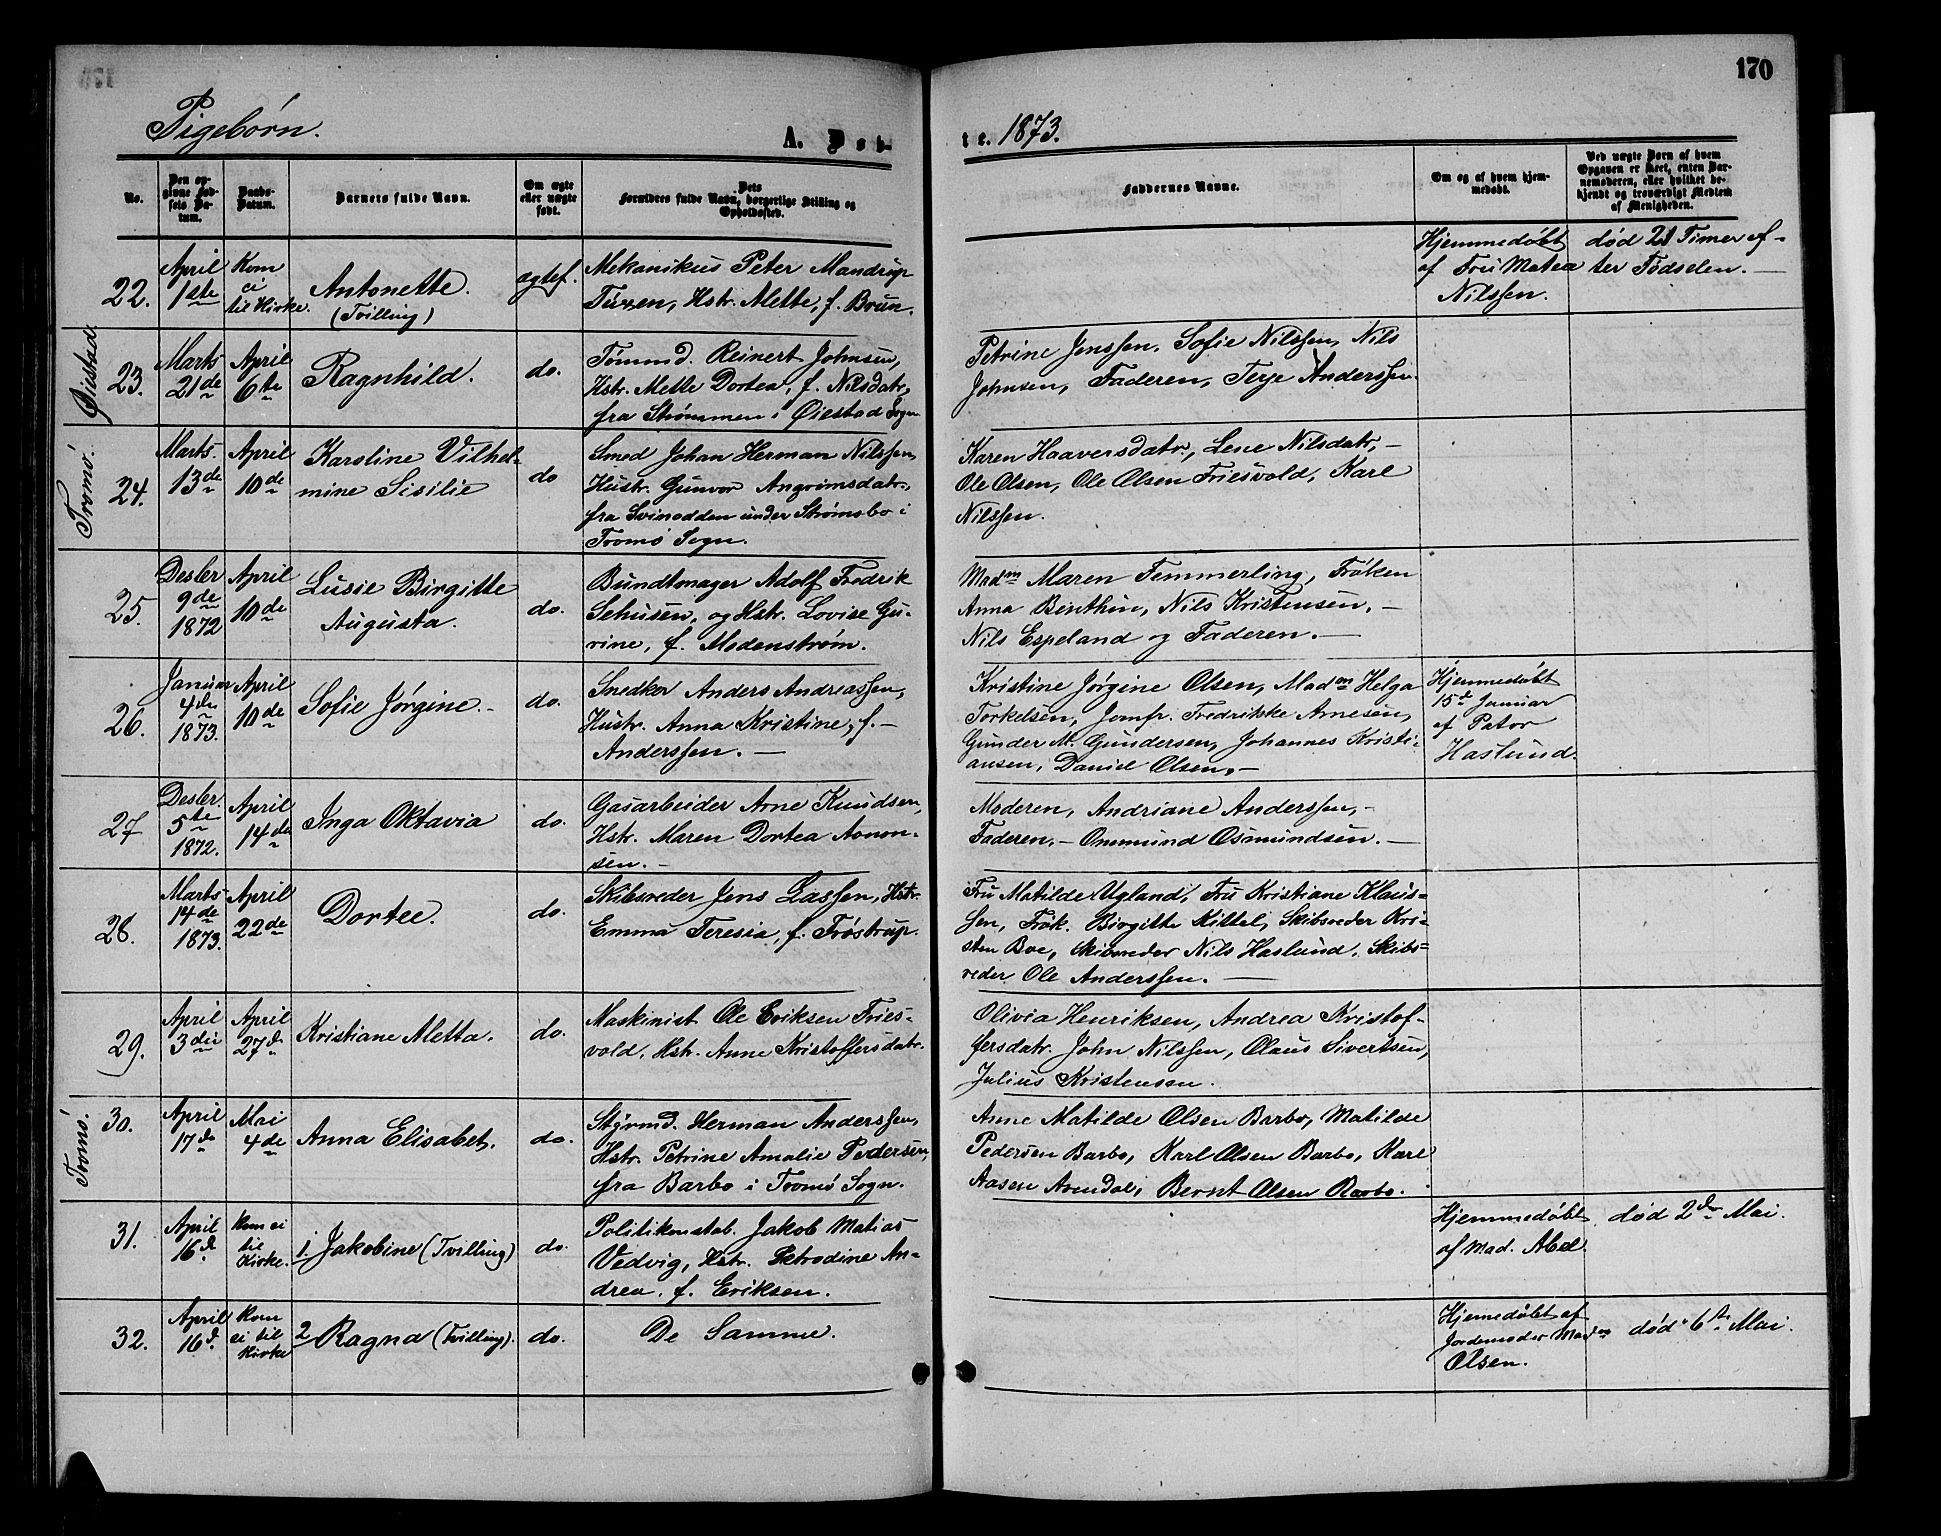 170
Pigebörn.
A. Døb-
te. 1873.
No.
Den op-
givne Fød-
sels Da-
tum.
Daabs-
Datum.
Barnets fulde Navn.
Om ægte
eller uægte
født.
Dets
Forældres fulde Navn, borgerlige Stilling og
Opholdssted.
Faddernes Navne.
Om og af hvem hjem-
medøbt.
Ved uægte Børn af hvem
Opgaven er skeet, enten Bar-
nemoderen, eller hvilket be-
kjendt og troværdigt Medlem
af Menigheden.
22.
April
1ste
Kom
ei
til Kirke.
Antonette.
(Tvilling)
ægtef.
Mekanikus Peter Mandrup
Tuxen, Hstr. Alette, f. Brun.
Hjemmedøbt
af Fru Matea
Nilssen.
død 21 Timer ef-
ter Fødselen. —
Øiestad.
23.
Marts
21de
April
6te
Ragnhild.
do.
Tømmd. Reinert Johnsen,
Hstr. Mette Dortea, f. Nilsdatr,
fra Strømmen i Øiestad Sogn
Petrine Jenssen, Sofie Nilssen, Nils
Johnsen, Faderen, Terje Anderssen.
Tromö.
24.
Marts.
13de
April
10de
Karoline Vilhel-
mine Sisilie
do
Smed Johan Herman Nilssen,
Hustr. Gunvor Angrimsdatr.,
fra Svinodden under Strømsbo i
Tromö Sogn.
Karen Haaversdatr, Lene Nilsdatr, —
Ole Olsen, Ole Olsen Friesvold, Karl
Nilssen.
25.
Desbr
9de
1872
April
10de
Lusie Birgitte
Augusta.
do.
Bundtmager Adolf Fredrik
Schusen, og Hstr. Lovise Gu-
rine, f. Modenstrøm.
Madm Maren Temmerling, Frøken
Anna Benthin, Nils Kristensen, —
Nils Espeland og Faderen. —
26.
Januar
4de
1873.
April
10de
Sofie Jørgine. -
do.
Snedker Anders Andreassen,
Hustr. Anna Kristine, f. —
Anderssen. —
Kristine Jørgine Olsen, Madm Helga
Torkelsen, Jomfr. Fredrikke Arnesen,
Gunder M. Gundersen, Johannes Kristi-
ansen, Daniel Olsen. —
Hjemmedøbt
15de Januar
af Pator
Haslund.
27
Desbr.
5te
1872.
April
14de
Inga Oktavia
do.
Gasarbeider Arne Knudsen,
Hstr. Maren Dortea Aanon-
sen. —
Moderen, Andriane Anderssen, -
Faderen, — Onemund Osmundsen. —
28.
Marts
14de
1873.
April
22de
Dortee.
do.
Skibsreder Jens Lassen, Hstr.
Emma Teresia, f. Frøstrup.
Fru Matilde Ugland, Fru Kristiane Klaus-
sen, Frøk. Birgitte Kittel, Skibsreder Kri-
sten Boe, Skibsreder Nils Haslund, Skibs-
reder Ole Anderssen. —
29.
April
3die
April
27de
Kristiane Aletta.
do.
Maskinist Ole Eriksen Fries-
vold, Hstr. Anne Kristoffersdatr.
Olivia Henriksen, Andrea Kristof-
fersdatr. John Nilssen, Olaus Sivertsen,
Julius Kristensen.
Tromö.
30.
April
17de
Mai
4de
Anna Elisabet.
do.
Styrmd. Herman Anderssen,
Hstr. Petrine Amalie Pedersen,
fra Barbo i Tromö Sogn.
Anne Matilde Olsen Barbo, Matilde
Pedersen Barbo, Karl Olsen Barbo, Karl
Aasen Arendal, Bernt Olsen Barbo.
31.
April
16de
Kom ei
til
Kirke.
1. Jakobine (Tvilling)
do.
Politikonstab. Jakob Matias
Vedvig, Hstr. Petrodine An-
drea, f. Eriksen.
Hjemmedøbt
af Mad. Abel.
død 2den Mai.
32.
April
16de
Kom
ei til
Kirke
2 Ragna (Tvilling).
do.
De Samme.
Hjemedøbt af
Jordemoder Madm
Olsen.
død 6te Mai.